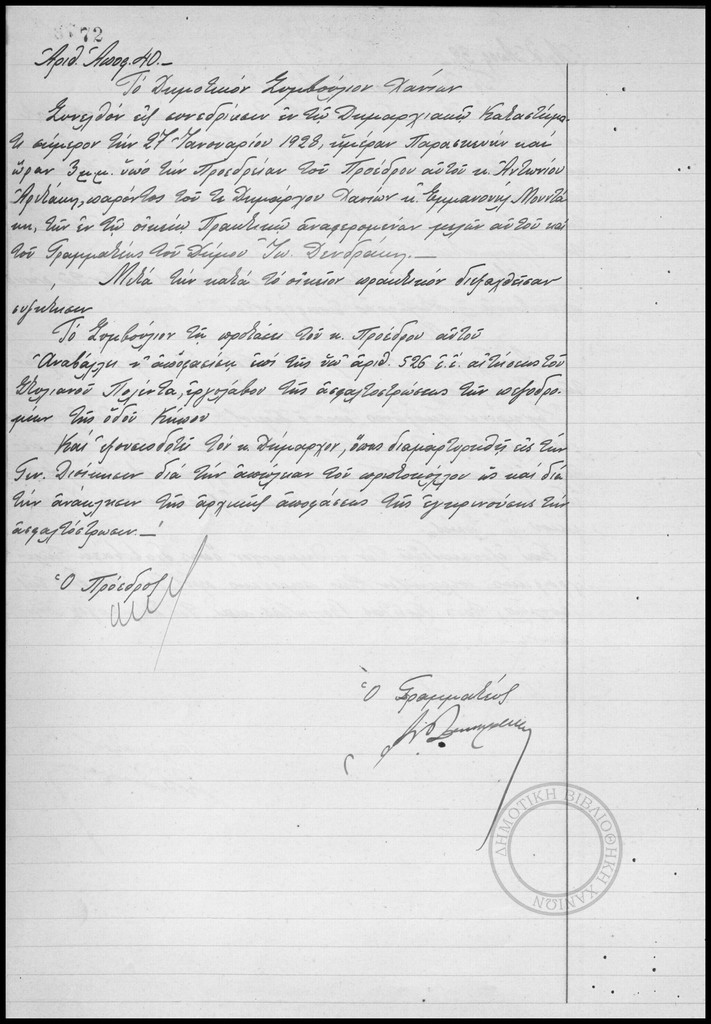 72
Ἀριθ. Ἀποφ. 40.-
Τό Δημοτικόν Συμβούλιον Χανίων
Συνελθόν εἰς συνεδρίασιν ἐν τῷ Δημαρχιακῷ Καταστήμα-
τι σήμερον τήν 27 Ἰανουαρίου 1928, ἡμέραν Παρασκευήν καί
ὥραν 3 μ.μ. ὑπό τήν Προεδρείαν τοῦ Προέδρου αὐτοῦ κ. Ἀντωνίου
παρόντος τοῦ τε Δημάρχου Χανίων κ. Ἐμμανουήλ Μουντά-
κη, τῶν ἐν τῷ οἰκείῳ Πρακτικῷ ἀναφερομένων μελῶν αὐτοῦ καί
τοῦ Γραμματέως τοῦ Δήμου Ἰω. Δενδράκη.-
Μετά τήν κατά τό οἰκεῖον πρακτικόν διεξαχθεῖσαν
συζήτησιν
Τό Συμβούλιον τῇ προτάσει τοῦ κ. Προέδρου αὐτοῦ
Ἀναβάλλει ν' ἀποφασίσῃ ἐπί τῆς ὑπ' ἀριθ. 526 ἐ.ἔ. αἰτήσεως τοῦ
Στυλιανοῦ Πολέντα, ἐργολάβου τῆς ἀσφαλτοστρώσεως τῶν πεζοδρο-
μίων τῆς ὁδοῦ Κήπου
Καί ἐξουσιοδοτεῖ τόν κ. Δήμαρχον, ὅπως διαμαρτυρηθῇ εἰς τήν
Γεν. Διοίκησιν διά τήν ἀπώλειαν τοῦ πρωτοκόλλου ὡς καί διά
τήν ἀνάκλησιν τῆς ἀρχικῆς ἀποφάσεως τῆς ἐγκρινούσης τήν
ἀσφαλτόστρωσιν.-
Ὁ Πρόεδρος
Ὁ Γραμματεύς
ΔΗΜΟΤΙΚΗ ΒΙΒΛΙΟΘΗΚΗ ΧΑΝΙΩΝ